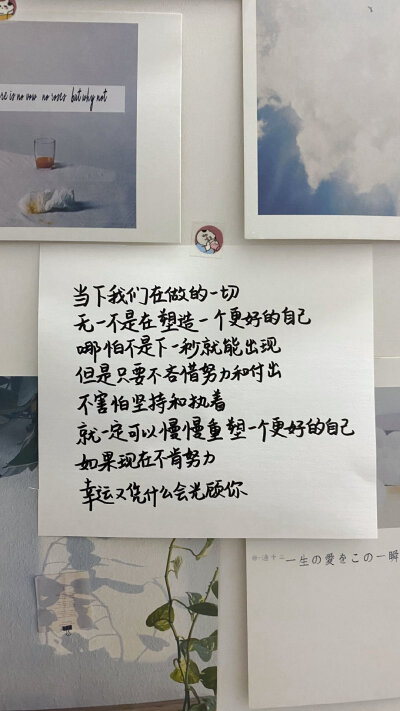 no vow no roses but why not
当下我们在做的一切
无一不是在塑造一个更好的自己
哪怕不是下一秒就能出现
但是只要不吝惜努力和付出
不害怕坚持和执着
就一定可以慢慢重塑一个更好的自己
如果现在不肯努力
幸运又凭什么会光顾你
一生の愛をこの一瞬